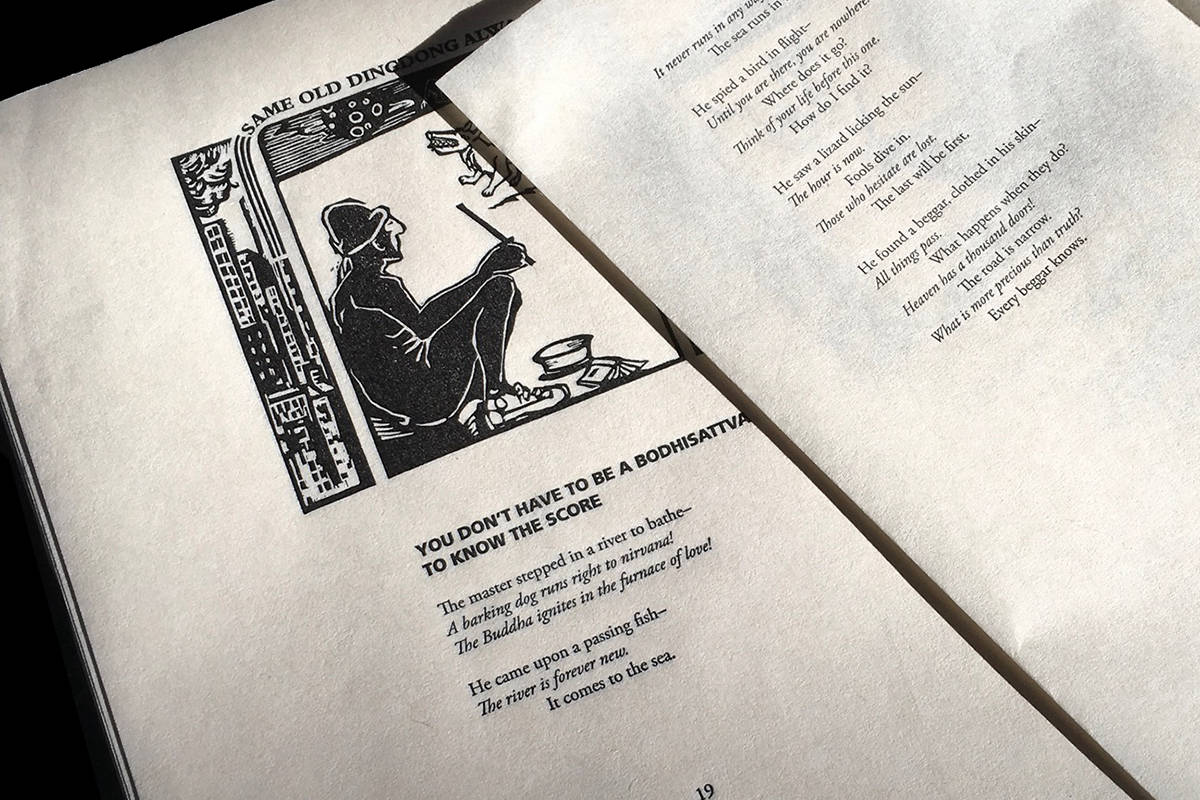 SAME OLD DINGDONG ALWA
YOU DON'T HAVE TO BE A BODHISATTVA
TO KNOW THE SCORE
The master stepped in a river to bathe–
A barking dog runs right to nirvana!
The Buddha ignites in the furnace of love!
He came upon a passing fish–
The river is forever new.
It comes to the sea.
19
It never runs in any way
The sea runs in
He spied a bird in flight–
Until you are there, you are nowhere.
Where does it go?
Think of your life before this one.
How do I find it?
He saw a lizard licking the sun–
The hour is now.
Fools dive in.
Those who hesitate are lost.
The last will be first.
He found a beggar, clothed in his skin–
All things pass.
What happens when they do?
Heaven has a thousand doors!
The road is narrow.
What is more precious than truth?
Every beggar knows.